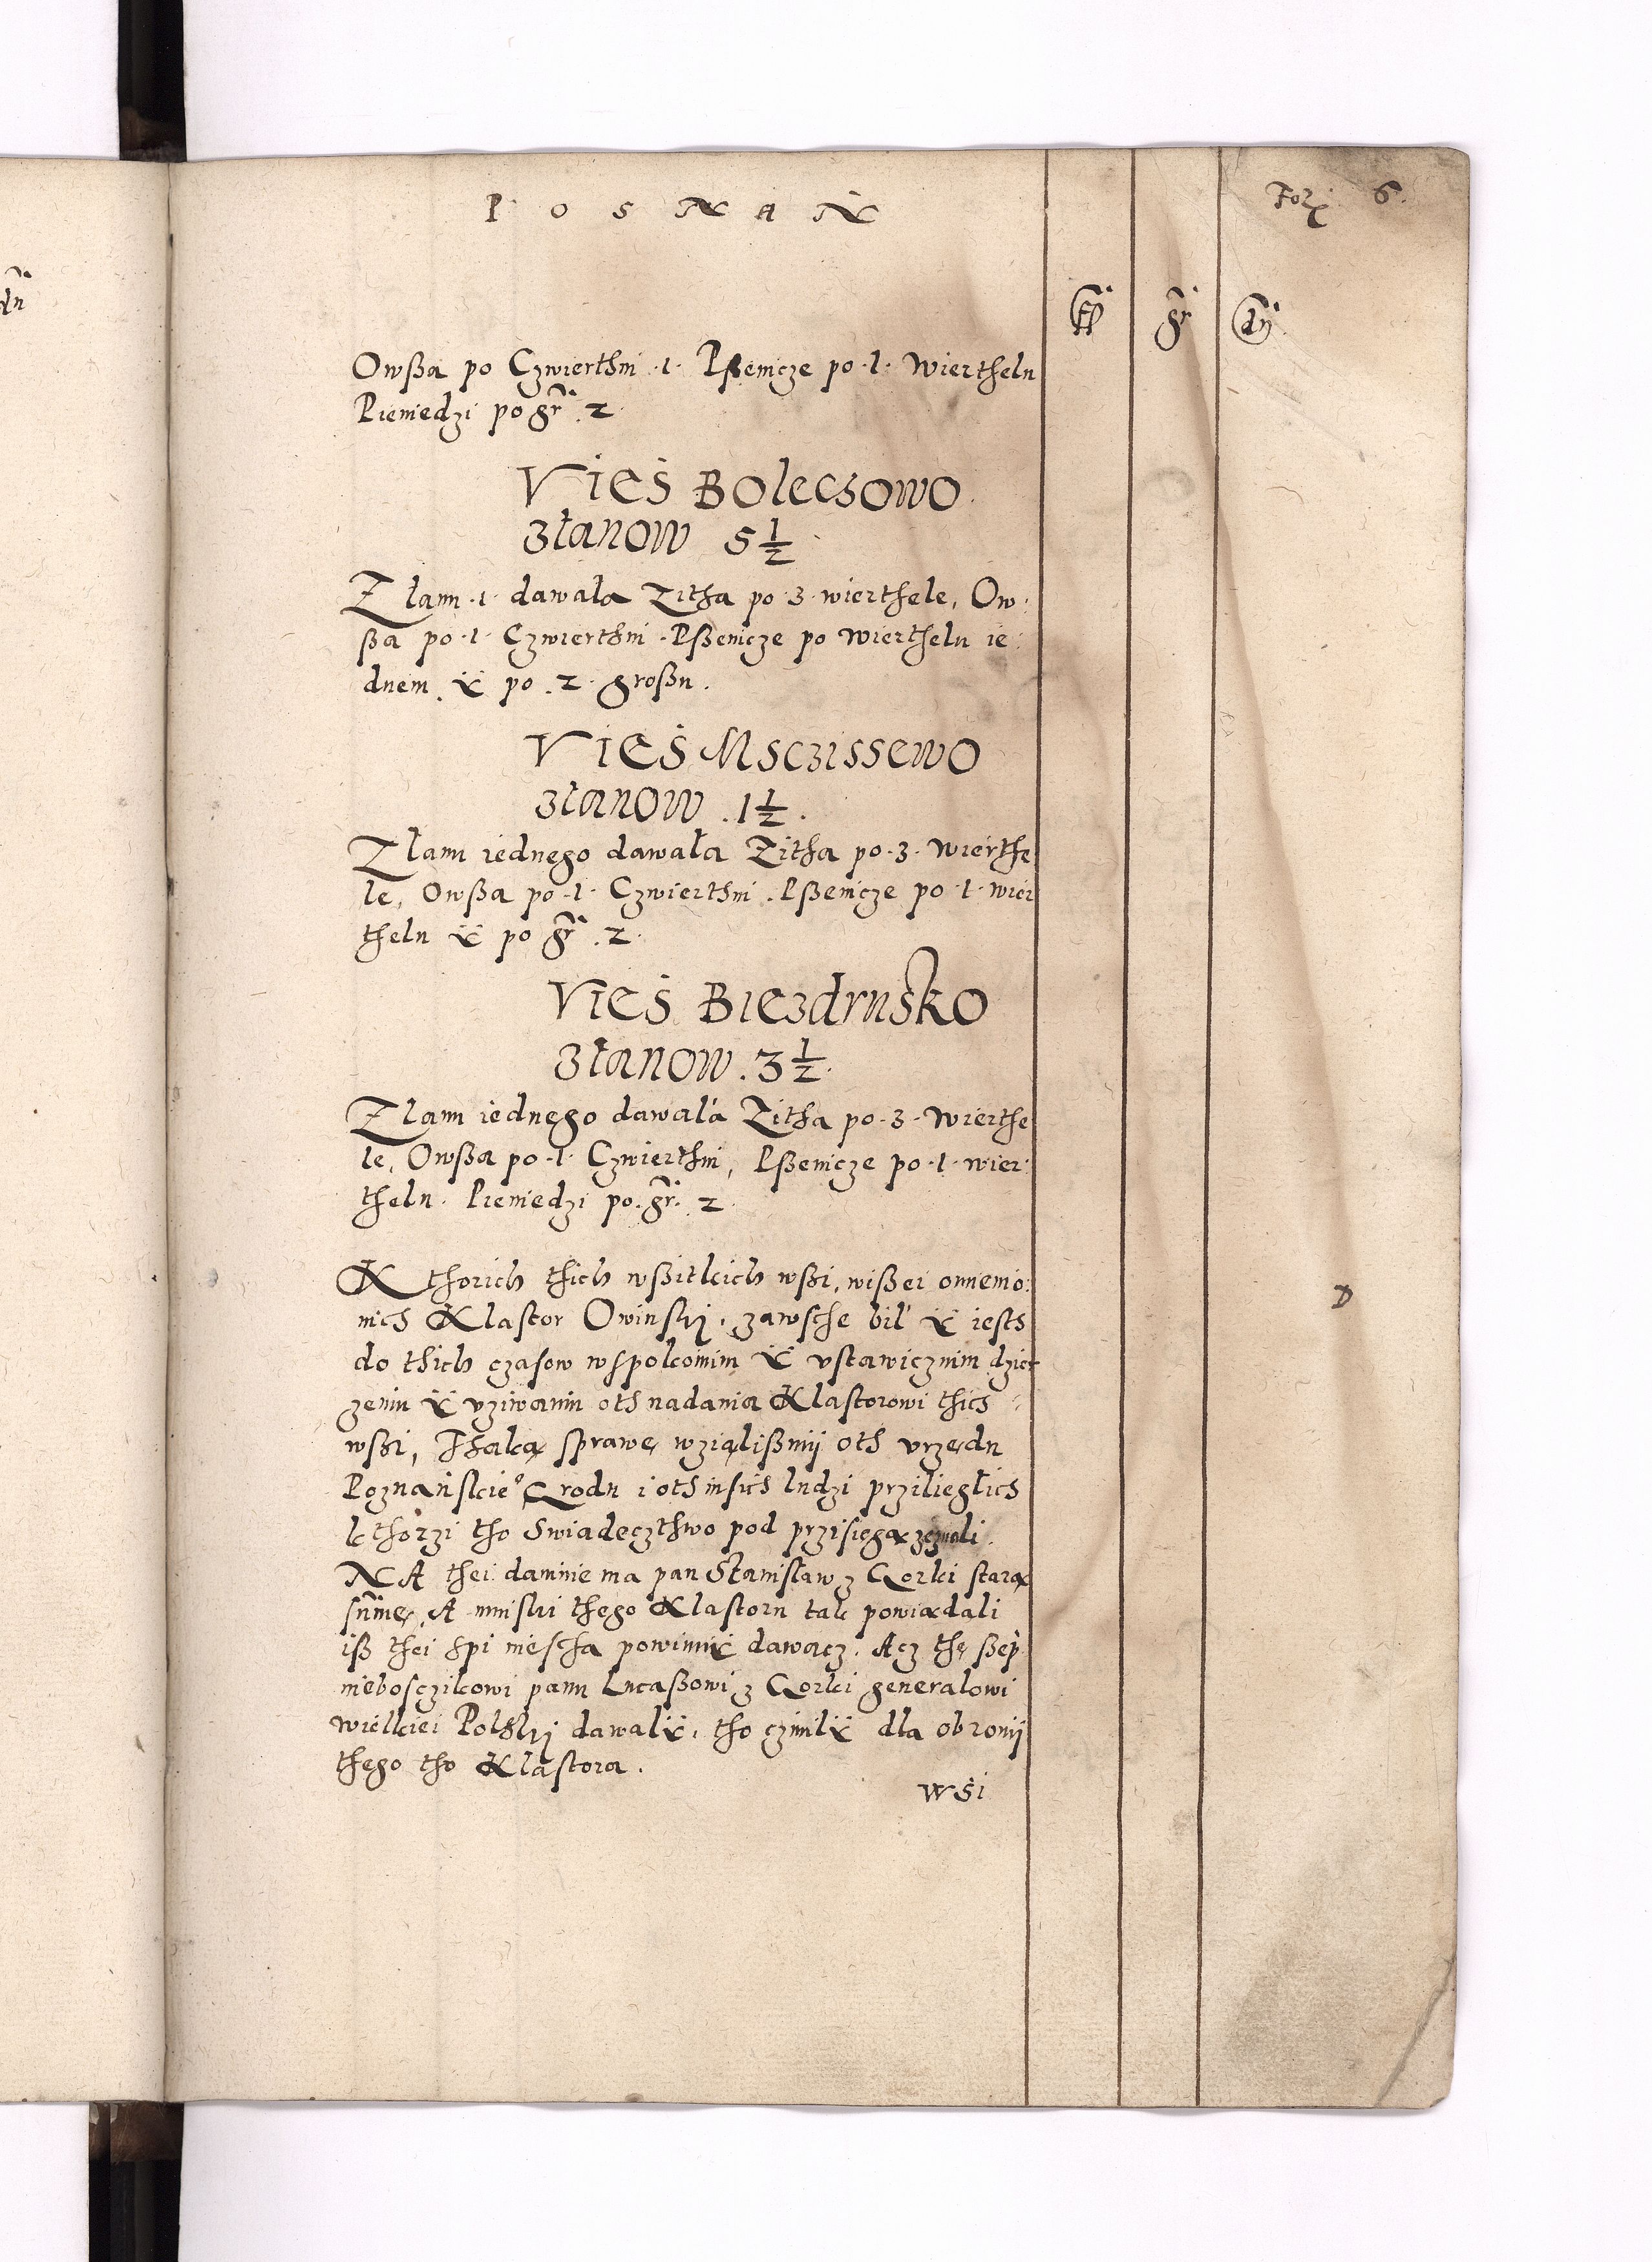 POSNAŃ
Foli 6.
fl gr dn
Owßa po Czwierthni .1. Pßenicze po .1. Wierthelu
Pieniedzi po gr. 2.
Vies Bolecʒowo
złanow 5 1/2.
Z łanu .1. dawała Zitha po 3 wierthele, Ow:
ßa po .1. Czwierthni. Pßenicze po Wierthelu ie:
dnem. ÿ po .2. großu.
Vies Msczissewo
złanow .1 1/2.
Z łanu iednego dawała Zitha po .3. Wierthe
le, Owßa po .1. Czwierthni. Pßenicze po .1. wier
thelu ÿ po gr. 2.
Vies Biezdrusko
złanow. 3 1/2.
Z łanu iednego dawała Zitha po .3. Wierthe
le, Owßa po .1. Czwierthni, Pßenicze po .1. wier:
thelu. Pieniedzi po. gr. 2.
K thorich thich wßitkich wßi, wißei omienio:
nich Klastor Owinski, zawsche bil ÿ iesth
do thich czasow wspokoinim ÿ vstawicznim dzier
zeniu ÿ vziwaniu oth nadania Klastorowi thich
wßi, Thaką sprawę wzięlißmij oth vrzędu
Poznańskie° Grodu i oth inßich ludzi przilieglich
kthorzi tho Swiadecztwo pod przisięgą zeznali.
NA thei daninie ma pan Stanislaw z Gorki starą
sumę, A mniski thego Klastoru tak powiadali
iß thei spi nie scha powinnÿ dawacz. Acz thę ßep
nieboszczikowi panu Lucaßowi z Gorki generalowi
wielkiei Polski dawalÿ, tho czinilÿ dla obronij
thego tho Klastora.
wsi
D